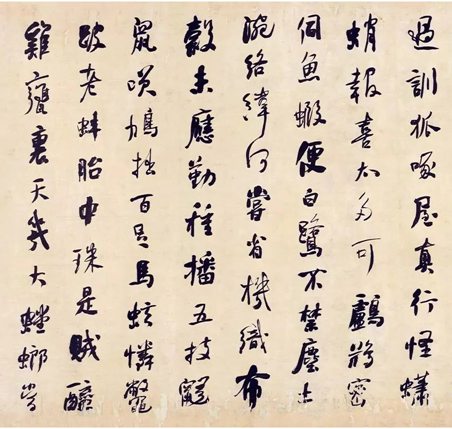 過訓狐啄屋真行怪蠨
蛸報喜太多可鸕鶿密
伺魚蝦便白鷺不禁塵土
涴絡緯何嘗省機織布
穀未應勤種播五技鼯
鼠笑鳩拙百足馬蚿憐鱉
跛老蚌胎中珠是賊醯
雞甕裏天幾大螳螂當